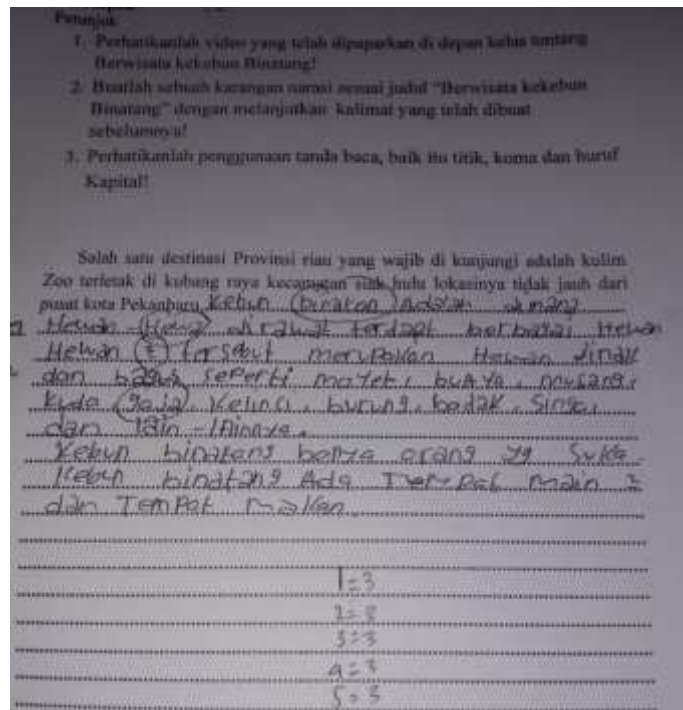 Petunjuk
1. Perhatikanlah video yang telah dipaparkan di depan kelas tentang
Berwisata kekebun Binatang!
2. Buatlah sebuah karangan narasi sesuai judul "Berwisata kekebun
Binatang" dengan melanjutkan kalimat yang telah dibuat
sebelumnya!
3. Perhatikanlah penggunaan tanda baca, baik itu titik, koma dan huruf
Kapital!
Salah satu destinasi Provinsi riau yang wajib di kunjungi adalah kulim
Zoo terletak di kubang raya kecamatan siak hulu lokasinya tidak jauh dari
pusat kota Pekanbaru. Kebun Adalah dimana
Hewan - di rawat terdapt berbagai Hewan
Hewan 2 tersebut merupakan Hewan Jinak
dan seperti buAya,
kuda gaja, Kelinci, burung, badak, Singa,
dan lain - lAinnya.
Kebun binatang orang yg Suka
Kebun binatang Ada Tempat main 2
dan TemPat makan.
1=3
3=3
4=3
5=3